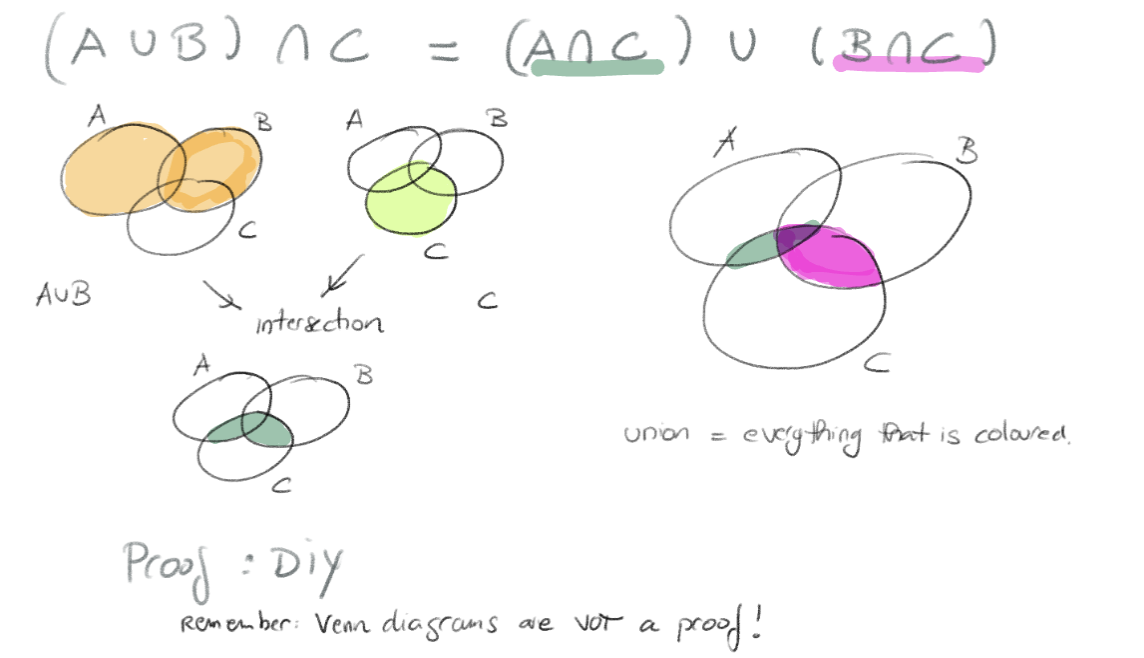 (A ∪ B) ∩ C = (A ∩ C) ∪ (B ∩ C)
A B C
A∪B
A B C
C
intersection
A B C
A B C
union = everything that is coloured.
Proof : DiY
Remember: Venn diagrams are NOT a proof!